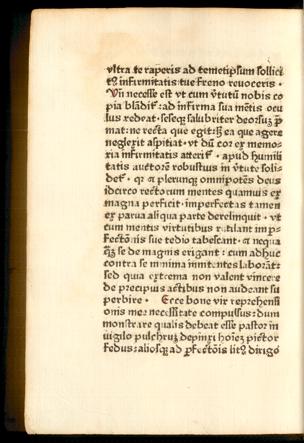 vltra te raperis ad temetipsum sollici
tꝫ infirmitatis tue freno reuoceris ·
Vn̄ necesse est vt cum v̓tutū nobis co
pia blādit᷑ : ad infirma sua mētis ocu
lus redeat · seseqꝫ salubriter deorsuꝫ p̄
mat : ne recta que egit · sꝫ ea que agere
neglexit aspiciat · vt dū cor ex memo
ria infirmitatis atterit᷑ · apud humili
tatis auctorē robustius in v̓tute soli-
det᷑ · qꝛ et plerunqꝫ omnipotēs deus
idcirco rectorum mentes quamuis ex
magna perficit · imperfectas tamen
ex parua aliqua parte derelinquit · vt
cum mentis virtutibus rutilant imp̲-
fectōnis sue tedio tabescant · et nequa
qꝫ̄ se de magnis erigant : cum adhuc
contra se minima innitentes laborāt :
sed quia extrema non valent vincere
de precipuis actibus non audeant su
perbire · Ecce bone vir reprehensi
onis mee necessitate compulsus : dum
monstrare qualis debeat esse pastor in
uigilo pulchruꝫ depinxi hoīeꝫ pictor
fedus : aliosqꝫ ad p̲fectōis litꝰ dirigo